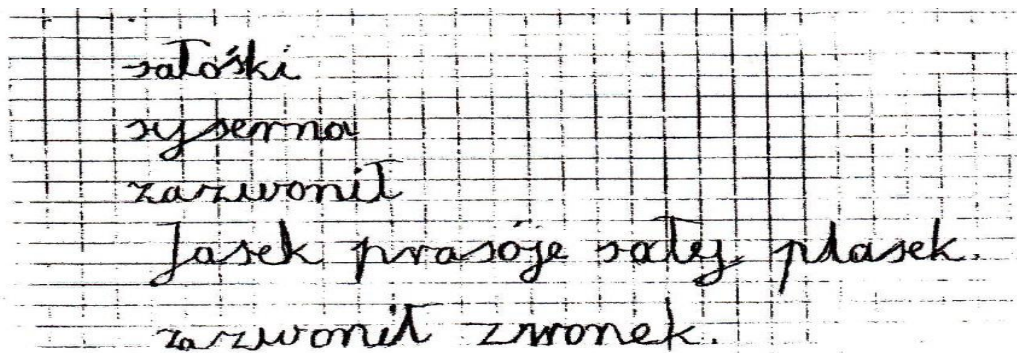 sałośki
syserna
zazwonił
Jasek prasóje sałej płasek.
zazwonił zwonek.